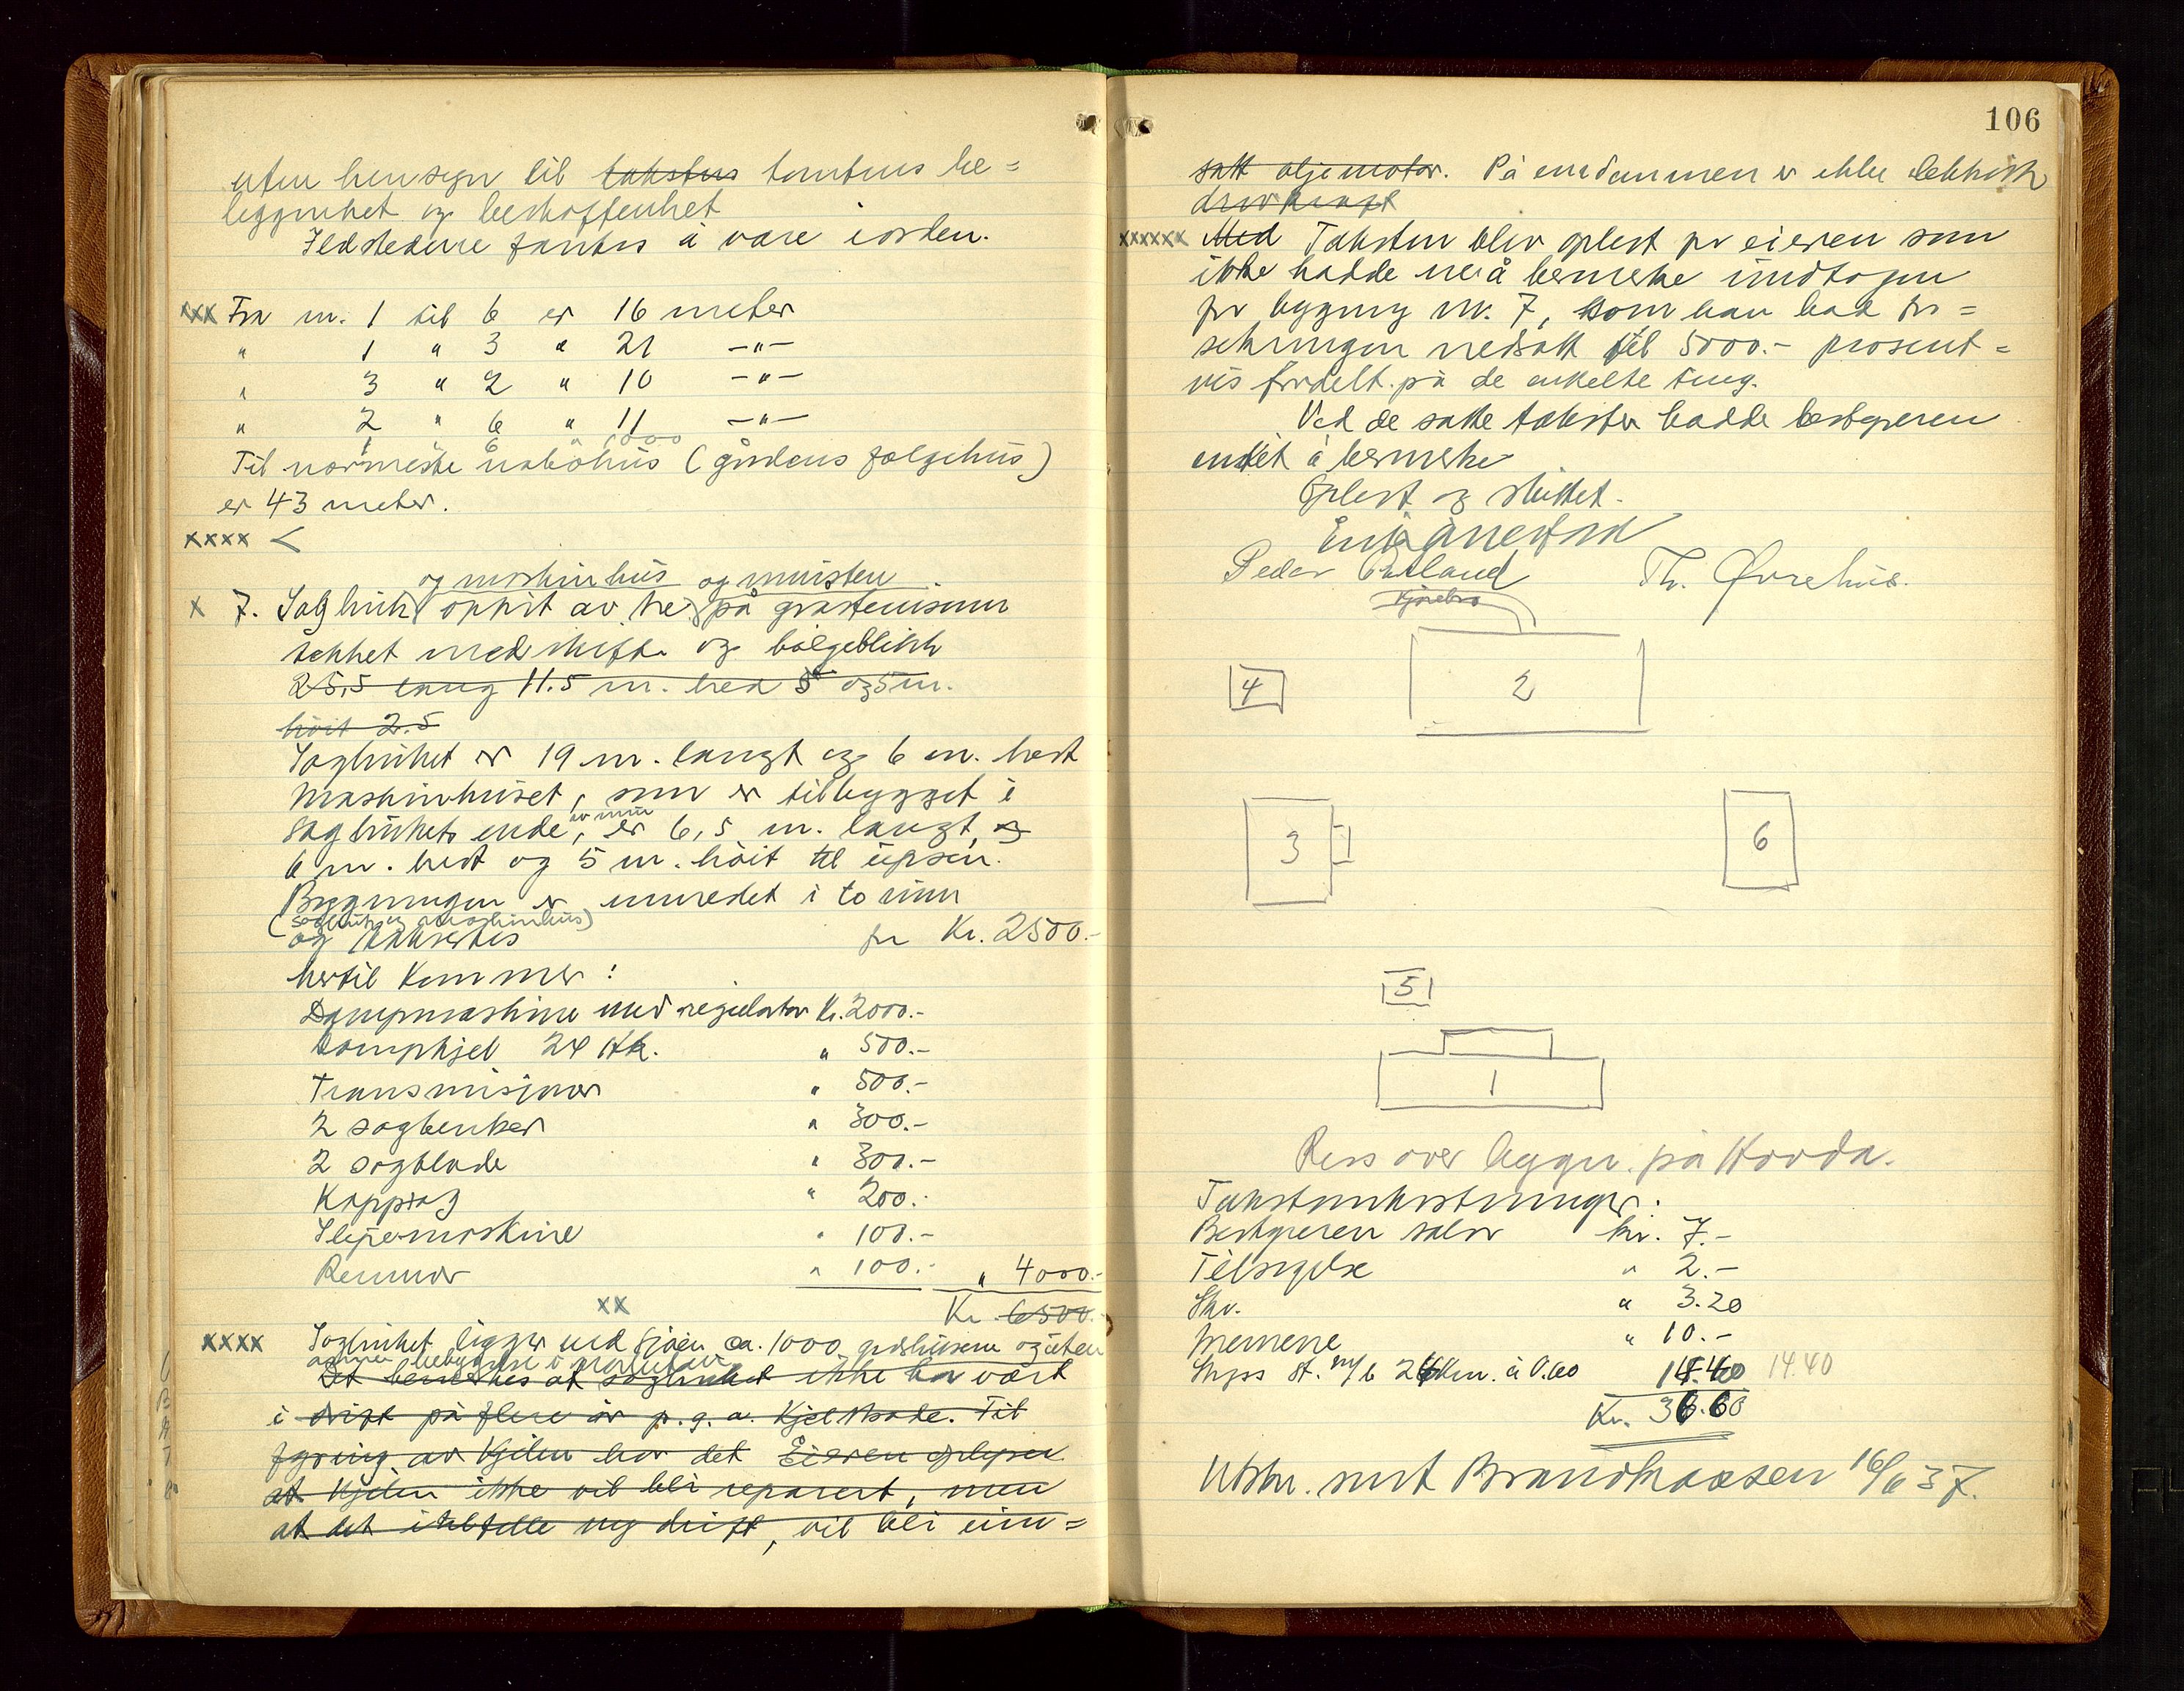 uten hensyn til takstens tomtens be=
liggenhet og beskaffenhet
Ildstedene fantes å være iorden.
xxx Fra nr. 1 til 6 er 16 meter
" 1 " 3 " 21 -"-
" 3 " 2 " 10 -"-
" 2 " 6 " 11 -"-
1 6 1000
Til nærmeste nabohus (gårdens følgehus)
er 43 meter.
xxxx <
og maskinhus og mursten
x 7. Sagbruk oppført av tre på gråstensmur
tekket med skifer og bølgeblikk
25,5 lang 11.5 m. bred 5 og 5 m.
høit 2.5
Sagbruket er 19 m. langt og 6 m. bredt
Maskinhuset, som er tilbygget i
av mur
sagbrukets ende, er 6,5 m. langt, og
6 m. bredt og 5 m. høit til upsen.
Bygningen er innredet i to rum
(sagbruk og maskinhus)
og takseres for Kr. 2500.-
hertil kommer:
Dampmaskine med regulator Kr. 2000.-
Dampkjel 24 Hk. " 500.-
Transmisjoner " 500.-
2 sagbenker " 300.-
2 sagblade " 300.-
Kappsag " 200.-
Slipemaskine " 100.-
Remmer " 100.- " 4000.-
xx Kr. 6500.-
xxxx Sagbruket ligger ved sjøen ca. 1000 gårdshusene og uten
annen bebyggelse i nærheten
Det bemerkes at sagbruket ikke har vært
i drift på flere år p.g.a. kjelskade. Til
fyring av kjelen har det Eieren oplyser
at kjelen ikke vil bli reparert, men
at det i tilfelle ny drift, vil bli inn=
106
satt oljemotor. På eiendommen er ikke elektrisk
drivkraft
xxxxxx Med Taksten blev oplest for eieren som
ikke hadde noe å bemerke undtagen
for bygning nr. 7, som han bad for=
sikringen nedsatt til 5000.- prosent=
vis fordelt på de enkelte ting.
Ved de satte takster hadde bestyreren
intet å bemerke
Oplest og sluttet.
Peder Th. Øvrehus.
4
2
3
6
5
1
Riss over bygn. på Hovda.
Takstomkostninger:
Bestyreren salær kr. 7.-
Tilsigelse " 2.-
Skr. " 3.20
Mennene " 10.-
Skyss st. m/b 24 km. à 0.60 14.40 14.40
Kr. 36.60
Utskr. sendt Brandkassen 16/6 37.